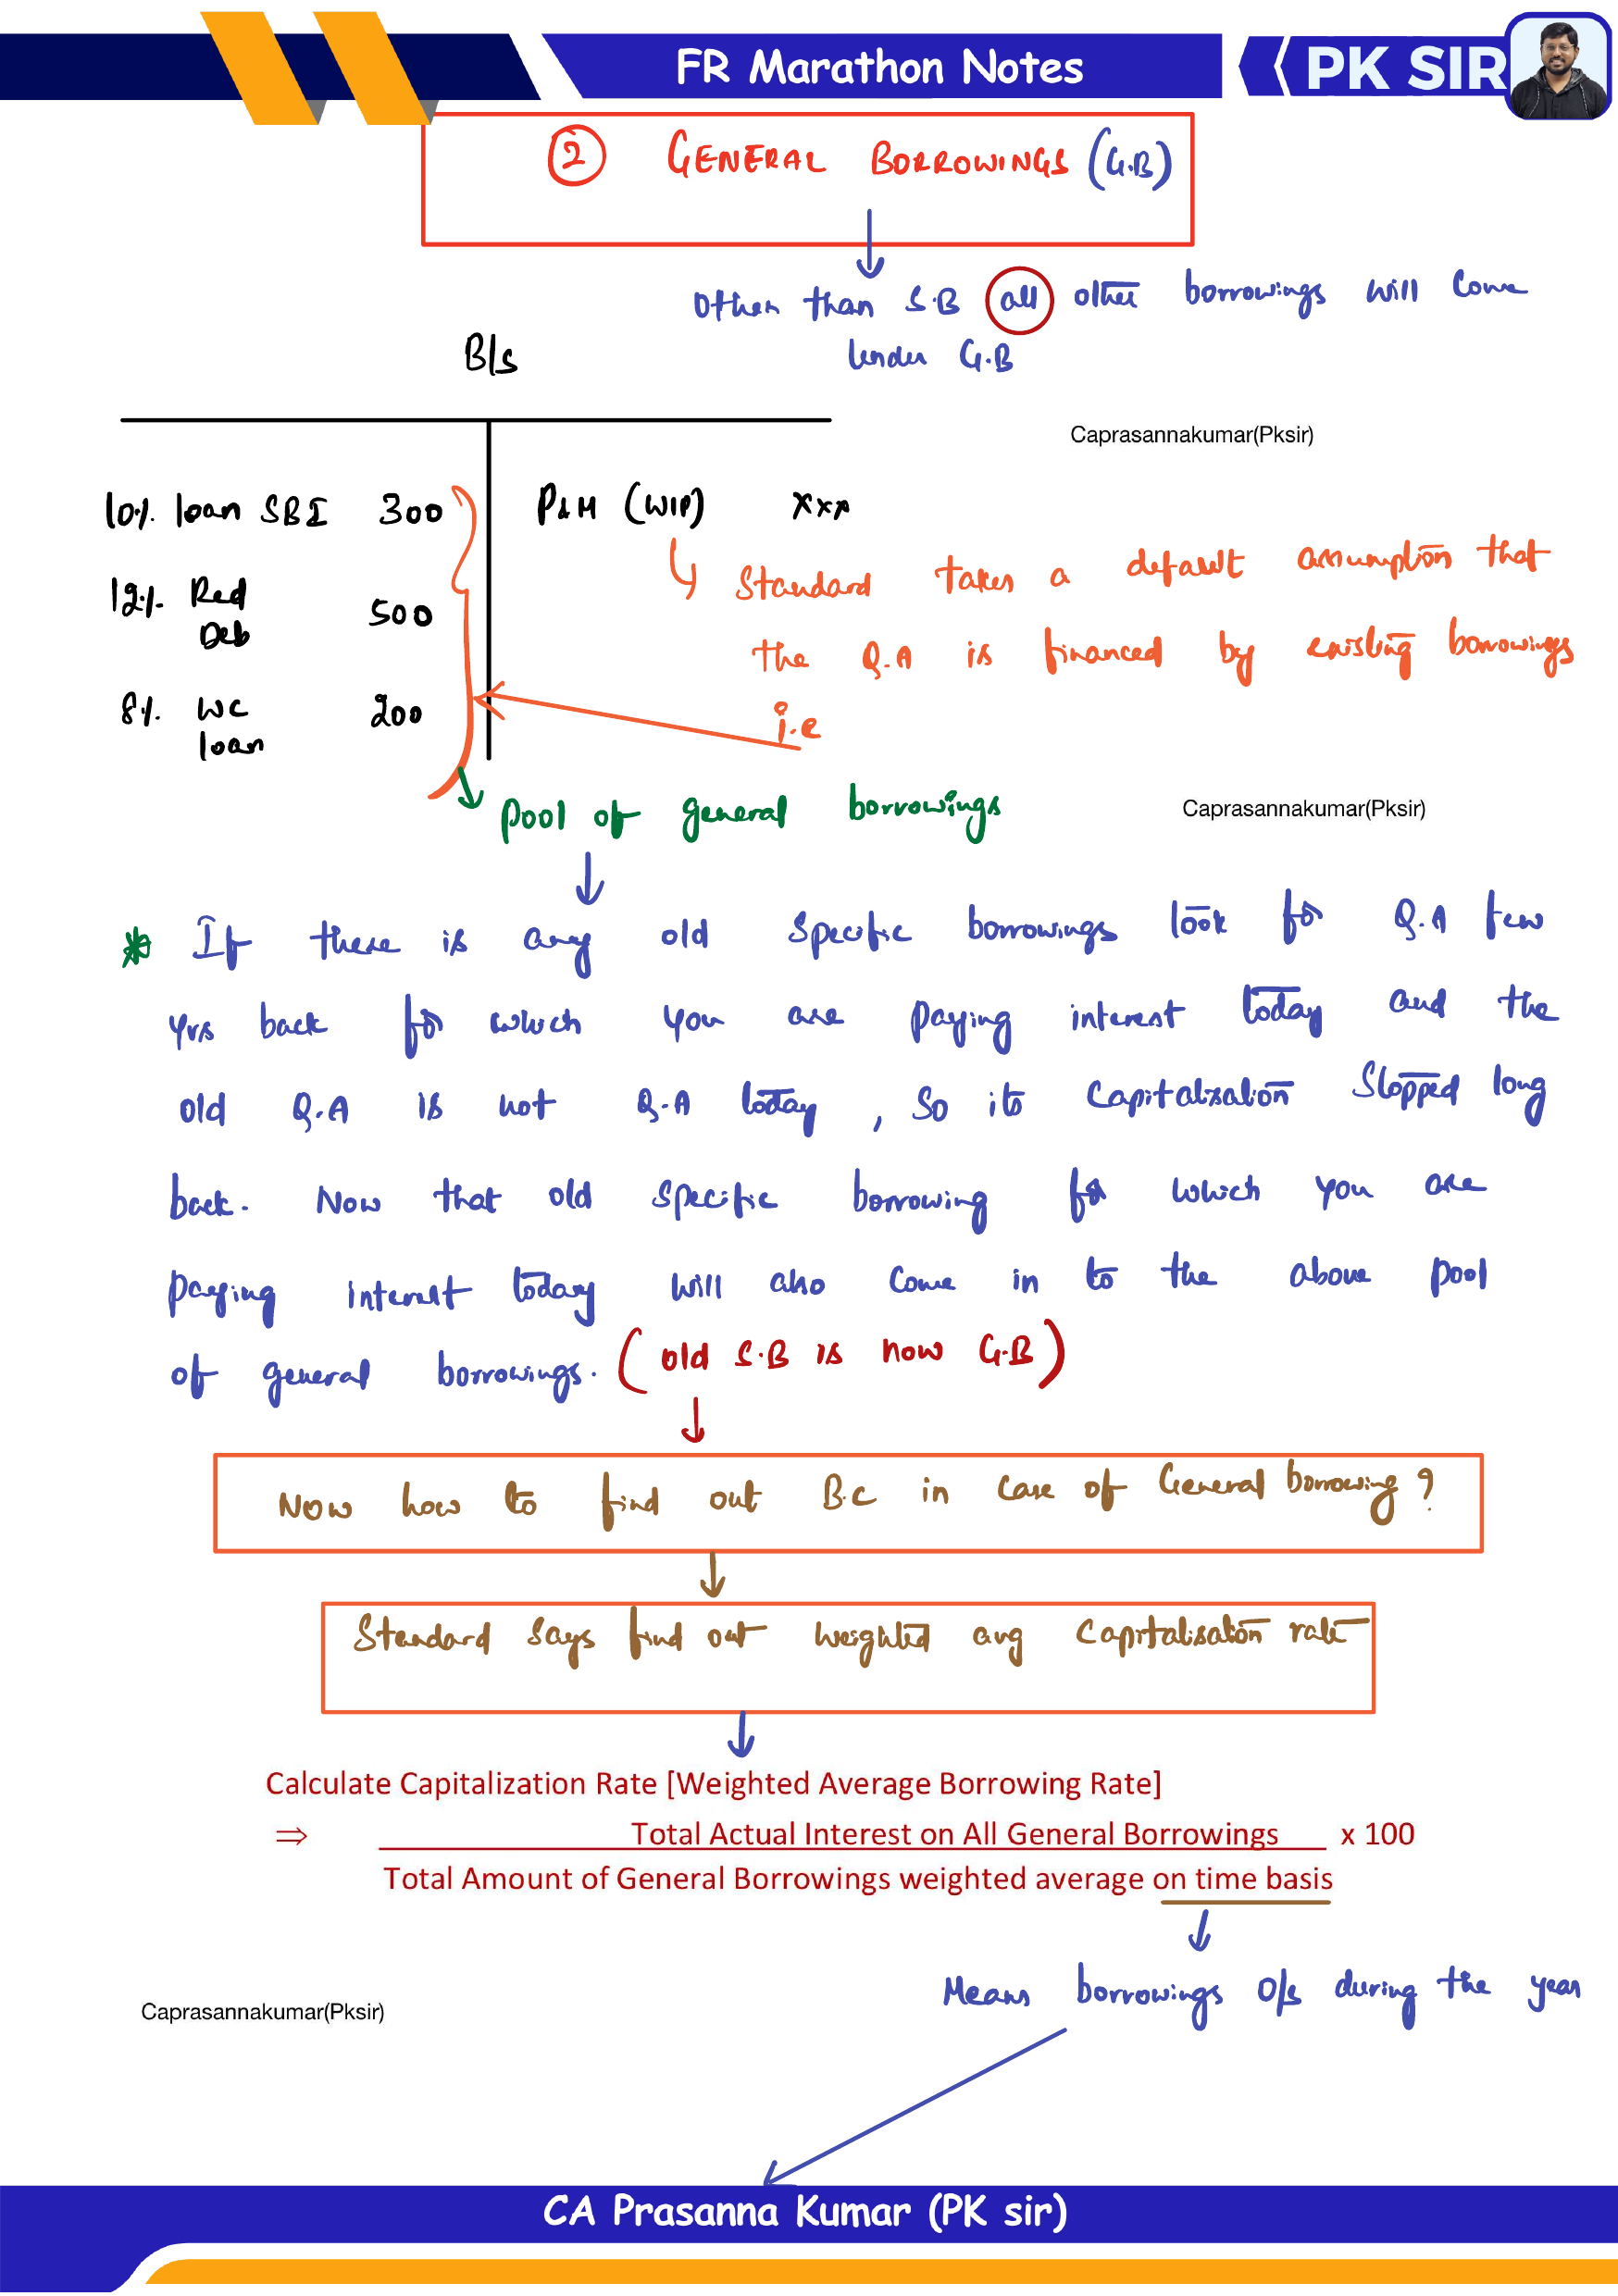 FR Marathon Notes
PK SIR
② GENERAL BORROWINGS (G.B)
Other than S.B all other borrowings will come
under G.B
B/s
Caprasannakumar(Pksir)
10% loan SBI 300
P&M (WIP) xxx
Standard takes a default assumption that
12% Red 500
Deb
the Q.A is financed by existing borrowings
8% WC 200
loan
i.e
Pool of general borrowings
Caprasannakumar(Pksir)
* If there is any old specific borrowings took for Q.A few
yrs back for which you are paying interest today and the
old Q.A is not Q.A today, so its capitalisation stopped long
back. Now that old specific borrowing for which you are
paying interest today will also come in to the above pool
of general borrowings. (old S.B is now G.B)
Now how to find out B.C in case of General borrowing?
Standard says find out weighted avg capitalisation rate
Calculate Capitalization Rate [Weighted Average Borrowing Rate]
⇒ Total Actual Interest on All General Borrowings x 100
Total Amount of General Borrowings weighted average on time basis
Means borrowings o/s during the year
Caprasannakumar(Pksir)
CA Prasanna Kumar (PK sir)